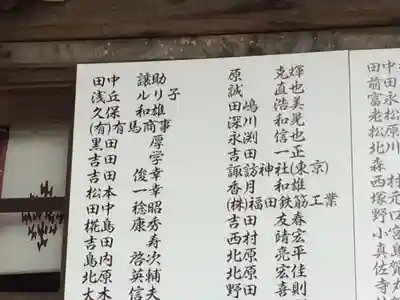 田中 譲助
浅丘 ルリ子
久保 和雄
(有)有馬商事
黒田 厚
吉田 学
吉本 俊幸
松田 一幸
田中 稔昭
椛島 康秀
吉田 寿
島内 啓次
北原 英輔
大木 信夫
原 克輝
誠 直也
田嶋 浩美
深川 和晃
永渕 信也
吉田 一正
諏訪神社(東京)
香月 和雄
(株)福田鉄筋工業
吉田 友春
西村 靖宏
北原 亮平
北原 宏佳
田 喜則
田中
前田
富永
老松
松原
北川
森
西村
塚元
野口
小宮
真島
佐賀
寺